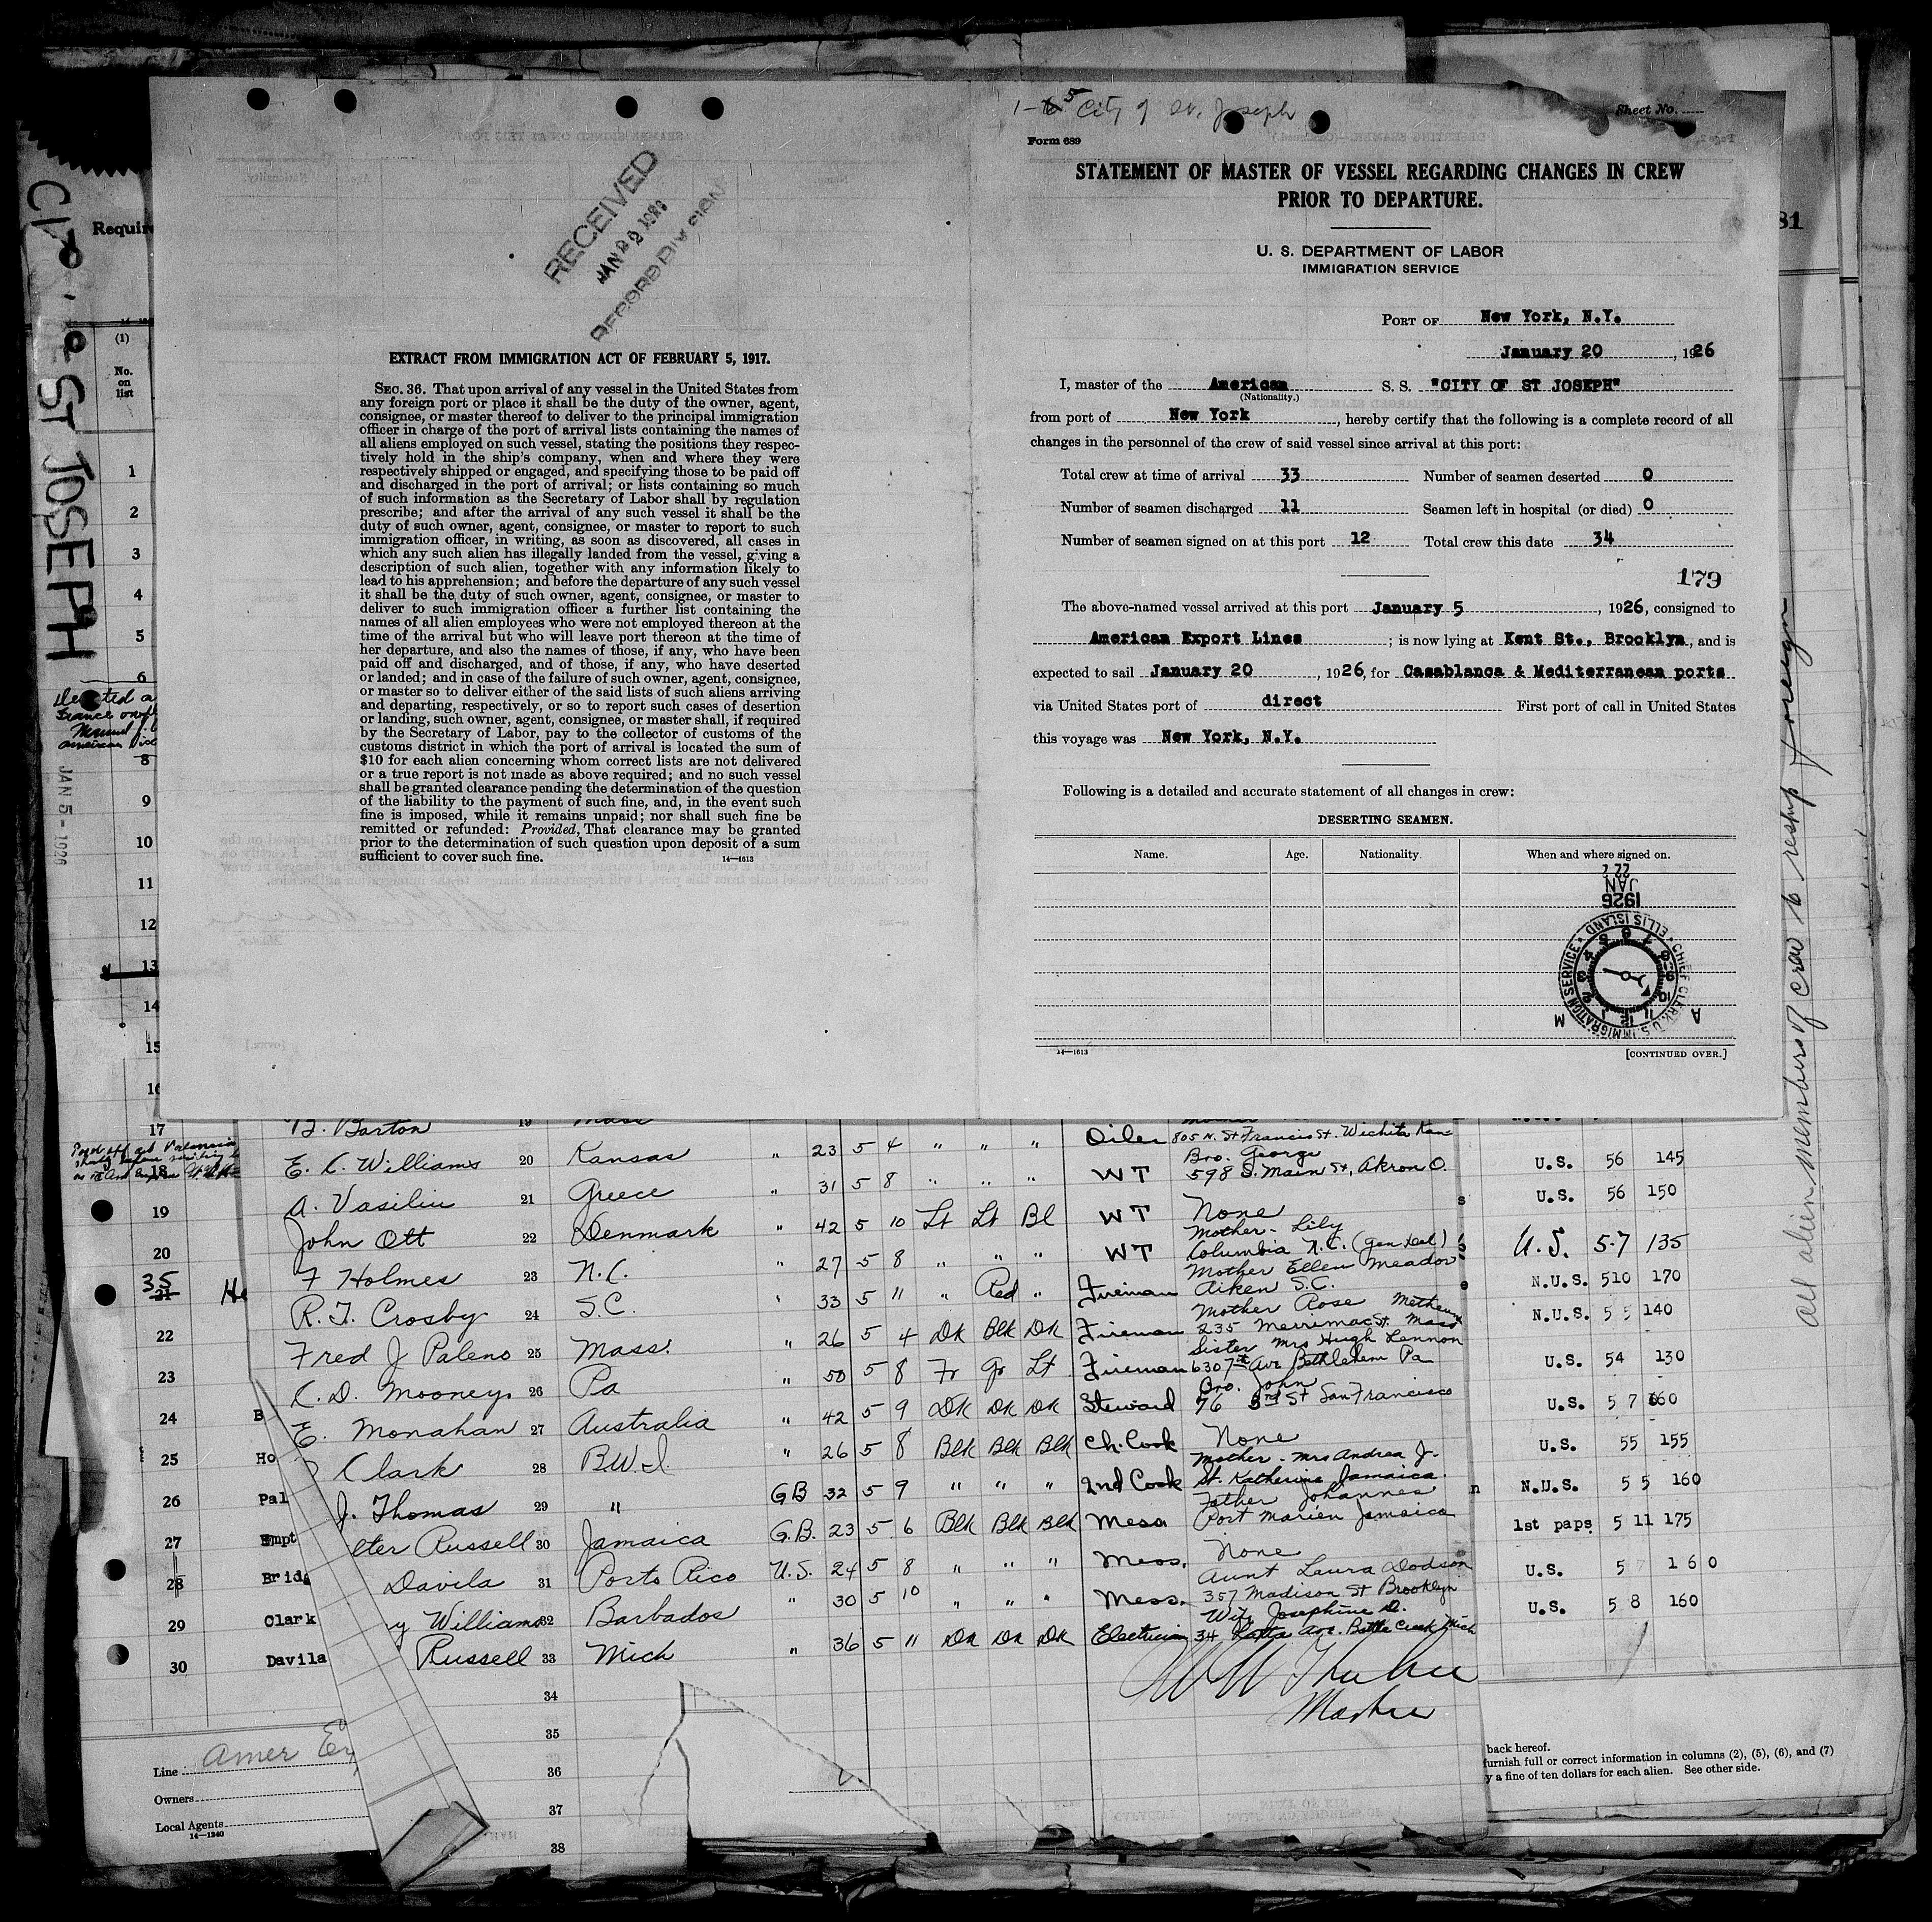 1-5 City of St. Joseph
Sheet No.
Form 689
STATEMENT OF MASTER OF VESSEL REGARDING CHANGES IN CREW
PRIOR TO DEPARTURE.
U. S. DEPARTMENT OF LABOR
IMMIGRATION SERVICE
PORT OF New York, N.Y.
January 20, 1926
I, master of the American S. S. "CITY OF ST JOSEPH"
(Nationality.)
from port of New York, hereby certify that the following is a complete record of all
changes in the personnel of the crew of said vessel since arrival at this port:
Total crew at time of arrival 33 Number of seamen deserted 0
Number of seamen discharged 11 Seamen left in hospital (or died) 0
Number of seamen signed on at this port 12 Total crew this date 34
179
The above-named vessel arrived at this port January 5, 1926, consigned to
American Export Lines; is now lying at Kent St., Brooklyn, and is
expected to sail January 20, 1926, for Casablanca & Mediterranean ports
via United States port of direct First port of call in United States
this voyage was New York, N.Y.
Following is a detailed and accurate statement of all changes in crew:
DESERTING SEAMEN.
Name. Age. Nationality. When and where signed on.
JAN
1926
CHIEF CLERK U.S. IMMIGRATION SERVICE ELLIS ISLAND
A M
14—1613
[CONTINUED OVER.]
RECEIVED
RECORD DIVISION
EXTRACT FROM IMMIGRATION ACT OF FEBRUARY 5, 1917.
SEC. 36. That upon arrival of any vessel in the United States from
any foreign port or place it shall be the duty of the owner, agent,
consignee, or master thereof to deliver to the principal immigration
officer in charge of the port of arrival lists containing the names of
all aliens employed on such vessel, stating the positions they respec-
tively hold in the ship's company, when and where they were
respectively shipped or engaged, and specifying those to be paid off
and discharged in the port of arrival; or lists containing so much
of such information as the Secretary of Labor shall by regulation
prescribe; and after the arrival of any such vessel it shall be the
duty of such owner, agent, consignee, or master to report to such
immigration officer, in writing, as soon as discovered, all cases in
which any such alien has illegally landed from the vessel, giving a
description of such alien, together with any information likely to
lead to his apprehension; and before the departure of any such vessel
it shall be the duty of such owner, agent, consignee, or master to
deliver to such immigration officer a further list containing the
names of all alien employees who were not employed thereon at the
time of the arrival but who will leave port thereon at the time of
her departure, and also the names of those, if any, who have been
paid off and discharged, and of those, if any, who have deserted
or landed; and in case of the failure of such owner, agent, consignee,
or master so to deliver either of the said lists of such aliens arriving
and departing, respectively, or so to report such cases of desertion
or landing, such owner, agent, consignee, or master shall, if required
by the Secretary of Labor, pay to the collector of customs of the
customs district in which the port of arrival is located the sum of
$10 for each alien concerning whom correct lists are not delivered
or a true report is not made as above required; and no such vessel
shall be granted clearance pending the determination of the question
of the liability to the payment of such fine, and, in the event such
fine is imposed, while it remains unpaid; nor shall such fine be
remitted or refunded: Provided, That clearance may be granted
prior to the determination of such question upon deposit of a sum
sufficient to cover such fine. 14—1613
ST JOSEPH
(1)
No.
on
list
1
2
3
4
5
6
8
9
10
11
12
13
14
15
17
18
19
20
22
23
24
25
26
27
28
29
30
JAN 5 - 1926
35
81
Barton 19 Mass
E. C. Williams 20 Kansas " 23 5 4 " " " Oiler 805 N. St Francis St. Wichita Kan
Bro. George
A. Vasiliu 21 Greece " 31 5 8 " " " WT 598 S. Main St, Akron O.
John Ott 22 Denmark " 42 5 10 Lt Lt Bl WT None
Mother - Lily
F Holmes 23 N.C. " 27 5 8 " " " WT Columbia N.C. (Gen Del)
Mother Ellen Meador
R. T. Crosby 24 S.C. ' 33 5 11 " Red " Fireman Aiken S.C.
Mother Rose
Fred J Paleno 25 Mass. " 26 5 4 Dk Blk Dk Fireman 235 Merrimac St. Mass
Sister Mrs Hugh Lennon
C. D. Mooney 26 Pa " 50 5 8 Fr Gr Lt Fireman 630 7th Ave Bethlehem Pa
Bro. John
E. Monahan 27 Australia " 42 5 9 Dk Dk Dk Steward 76 3rd St San Francisco
Clark 28 B.W.I. " 26 5 8 Blk Blk Blk Ch. Cook None
Mother - Mrs Andrea J.
J. Thomas 29 " GB 32 5 9 " " " 2nd Cook St. Katherine Jamaica.
Father Johannes
eter Russell 30 Jamaica G.B. 23 5 6 Blk Blk Blk Mess Port Marien Jamaica
Davila 31 Porto Rico U.S. 24 5 8 " " " Mess. None
Aunt Laura Dodson
y Williams 32 Barbados " 30 5 10 " " " Mess. 357 Madison St Brooklyn
Wife Josephine D.
Russell 33 Mich " 36 5 11 Dk Dk Dk Electrician 34 Ave. Battle Creek Mich
Master
34
35
36
37
38
U.S. 56 145
U.S. 56 150
U.S. 5-7 135
N.U.S. 510 170
N.U.S. 5 5 140
U.S. 54 130
U.S. 5 7 160
U.S. 55 155
N.U.S. 5 5 160
1st paps 5 11 175
U.S. 5 160
U.S. 5 8 160
He
B
Ho
Pal
Empt
Bridg
Clark
Davila
Line Amer Ex
Owners
Local Agents
14—1240
back hereof.
furnish full or correct information in columns (2), (5), (6), and (7)
y a fine of ten dollars for each alien. See other side.
all alien members of crew to reship foreign